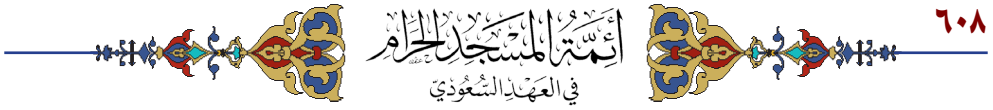 ٦٠٨
أَئِمَّةُ المَسْجِدِ الحَرَامِ
فِي العَهْدِ السُّعُودِيّ